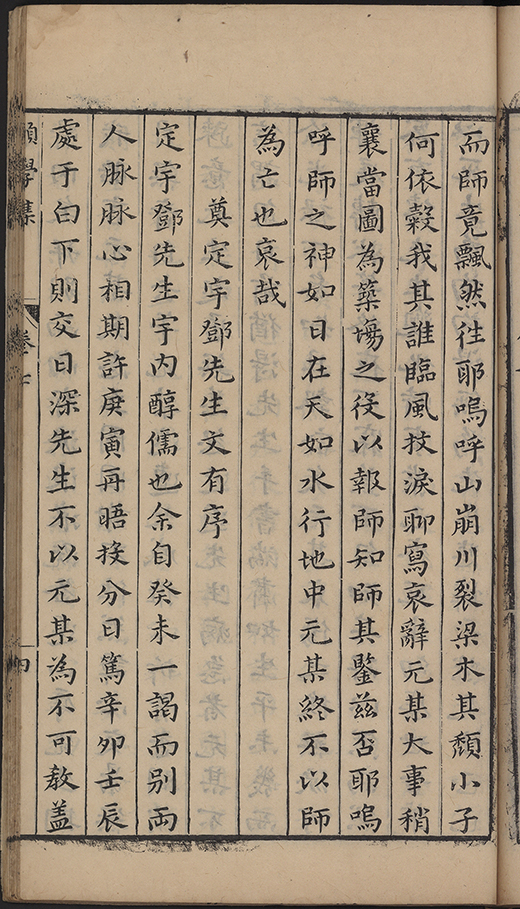 而師竟飄然徃耶嗚呼山崩川裂梁木其頽小子
何依糓我其誰臨風抆淚聊寫哀辭元某大事稍
襄當圖為築塲之役以報師知師其鑒兹否耶嗚
呼師之神如日在天如水行地中元某終不以師
為亡也哀哉
奠定宇鄧先生文有序
定宇鄧先生宇内醇儒也余自癸未一謁而别両
人脉脉心相期許庚寅再晤投分日篤辛卯壬辰
處于白下則交日深先生不以元某為不可教盖
願學集
卷七
四